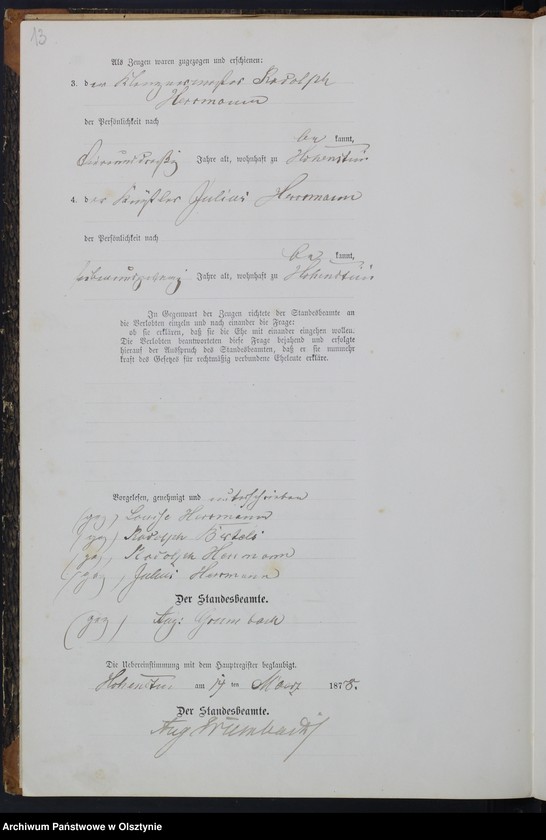 13
Als Zeugen waren zugezogen und erschienen:
3. der Klempnermeister Rudolph
Herrmann
der Persönlichkeit nach
be kannt,
Jahre alt, wohnhaft zu Hohenstein
4. der Julius Herrmann
der Persönlichkeit nach
be kannt,
siebenundzwanzig Jahre alt, wohnhaft zu Hohenstein
In Gegenwart der Zeugen richtete der Standesbeamte an
die Verlobten einzeln und nach einander die Frage:
ob sie erklären, daß sie die Ehe mit einander eingehen wollen.
Die Verlobten beantworteten diese Frage bejahend und erfolgte
hierauf der Ausspruch des Standesbeamten, daß er sie nunmehr
kraft des Gesetzes für rechtmäßig verbundene Eheleute erkläre.
Vorgelesen, genehmigt und unterschrieben
(gez) Louise Herrmann
(gez) Rudolph Bertels
(gez) Rudolph Herrmann
(gez) Julius Herrmann
Der Standesbeamte.
(gez) Aug: Grumbach
Die Uebereinstimmung mit dem Hauptregister beglaubigt.
Hohenstein am 14 ten Maerz 1878.
Der Standesbeamte.
Aug Grumbach
Archiwum Państwowe w Olsztynie